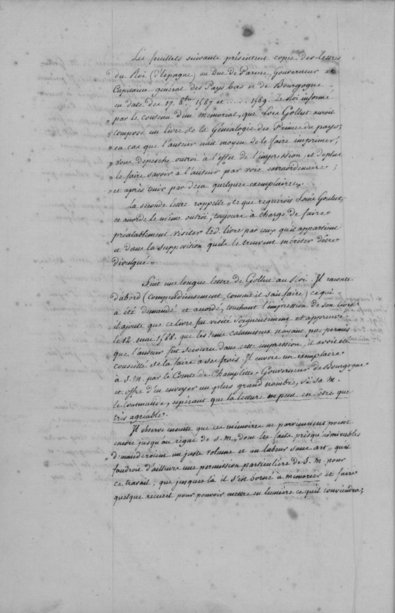 Les feuillets suivants présentent copie des lettres
du Roi (d'Espagne) au Duc de Parme, Gouverneur et
Capitaine général des Pays bas et de Bourgogne
en date des 17. 8bre 1587 et ..... 1589. Le Roi informe
par le contenu d'un mémorial, que Loïs Gollut auroit
composé un livre de la Généalogie des Princes du pays;
en cas que l'auteur eut moyen de le faire imprimer;
d'en depescher outroi à l'effet de l'impression et de plus
le faire savoir à l'auteur par voie extraordinaire;
et après tenir par deça quelques exemplaires.
La seconde lettre rappelle ce que requeroit Louis Gollut,
et accorde le même outroi, toujours à charge de faire
préalablement visiter led. livre par ceux qu'il appartient
et dans la supposition qu'ils le trouvent mériter d'être
divulgué.
Suit une longue lettre de Gollut au Roi. Il raconte
d'abord (compendieusement, comme il sait faire) ce qui
a été demandé et accordé, touchant l'impression de son livre
que ce livre fut visité soigneusement et approuvé
le 12 mai 1588. que les tems calamiteux n'ayant pas permis
que l'auteur fut secouru dans cette impression, il avoit été
de la faire à ses frais. Il envoie un exemplaire
à S. M. par le Comte de Champlitte, Gouverneur de Bourgogne
et offre d'en envoyer un plus grand nombre, si Sa M.
le commande, espérant que la lecture ne peut en être que
très agréable.
Il observe ensuite que ces mémoires ne parviennent point
encore jusqu'au règne de S. M., dont les faits presque innombrables
demanderoient un juste volume et un labeur sans art, qu'il
faudroit d'ailleurs une permission particulière de S. M. pour
ce travail; que jusques là il s'est borné à mémorier et faire
quelque recueil pour pouvoir mettre en lumière ce qu'il conviendra;